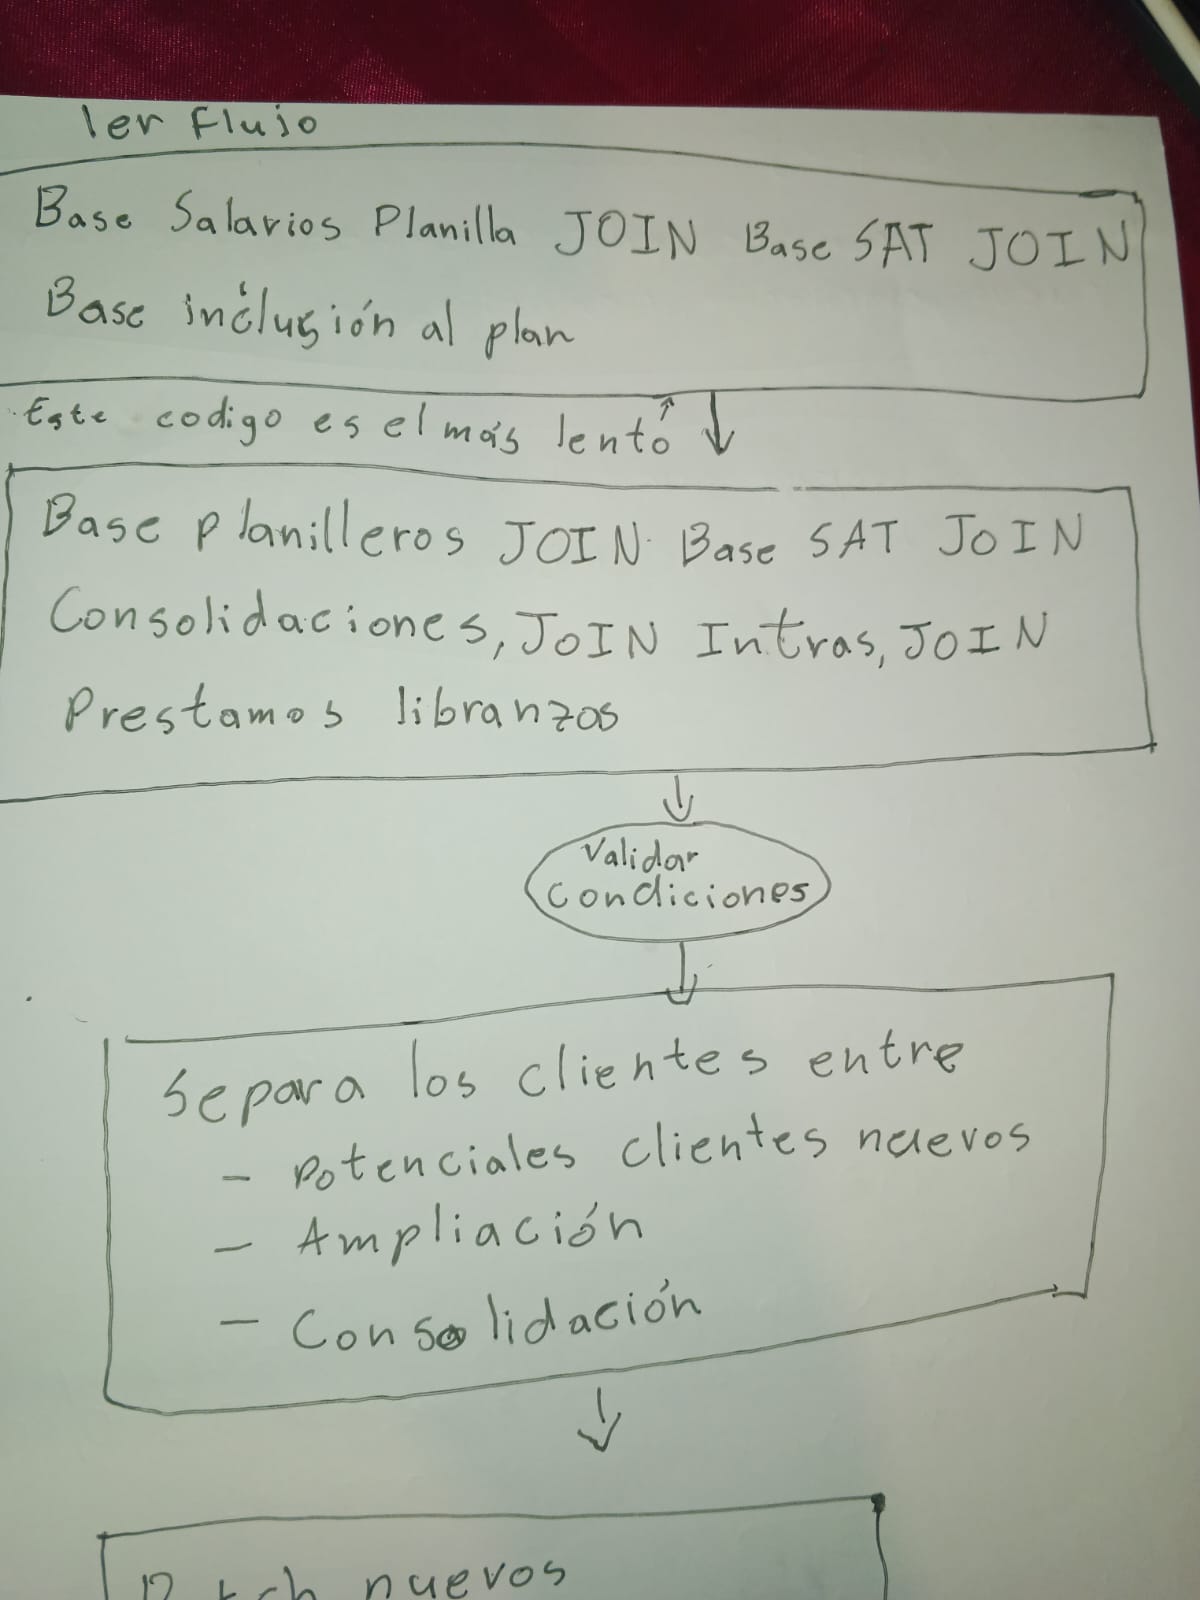 1er Flujo
Base Salarios Planilla JOIN Base SAT JOIN
Base inclusión al plan
Este codigo es el más lento
Base planilleros JOIN Base SAT JOIN
Consolidaciones, JOIN Intras, JOIN
Prestamos libranzas
Validar
Condiciones
Separa los clientes entre
- Potenciales clientes nuevos
- Ampliación
- Consolidación
nuevos